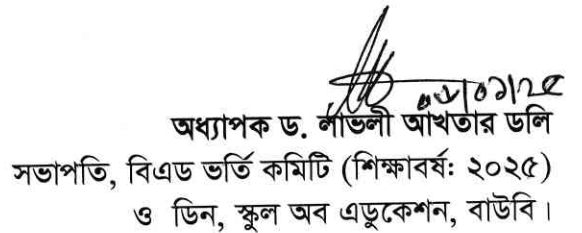 অধ্যাপক ড. লাভলী আখতার ডলি
সভাপতি, বিএড ভর্তি কমিটি (শিক্ষাবর্ষ: ২০২৫)
ও ডিন, স্কুল অব এডুকেশন, বাউবি।